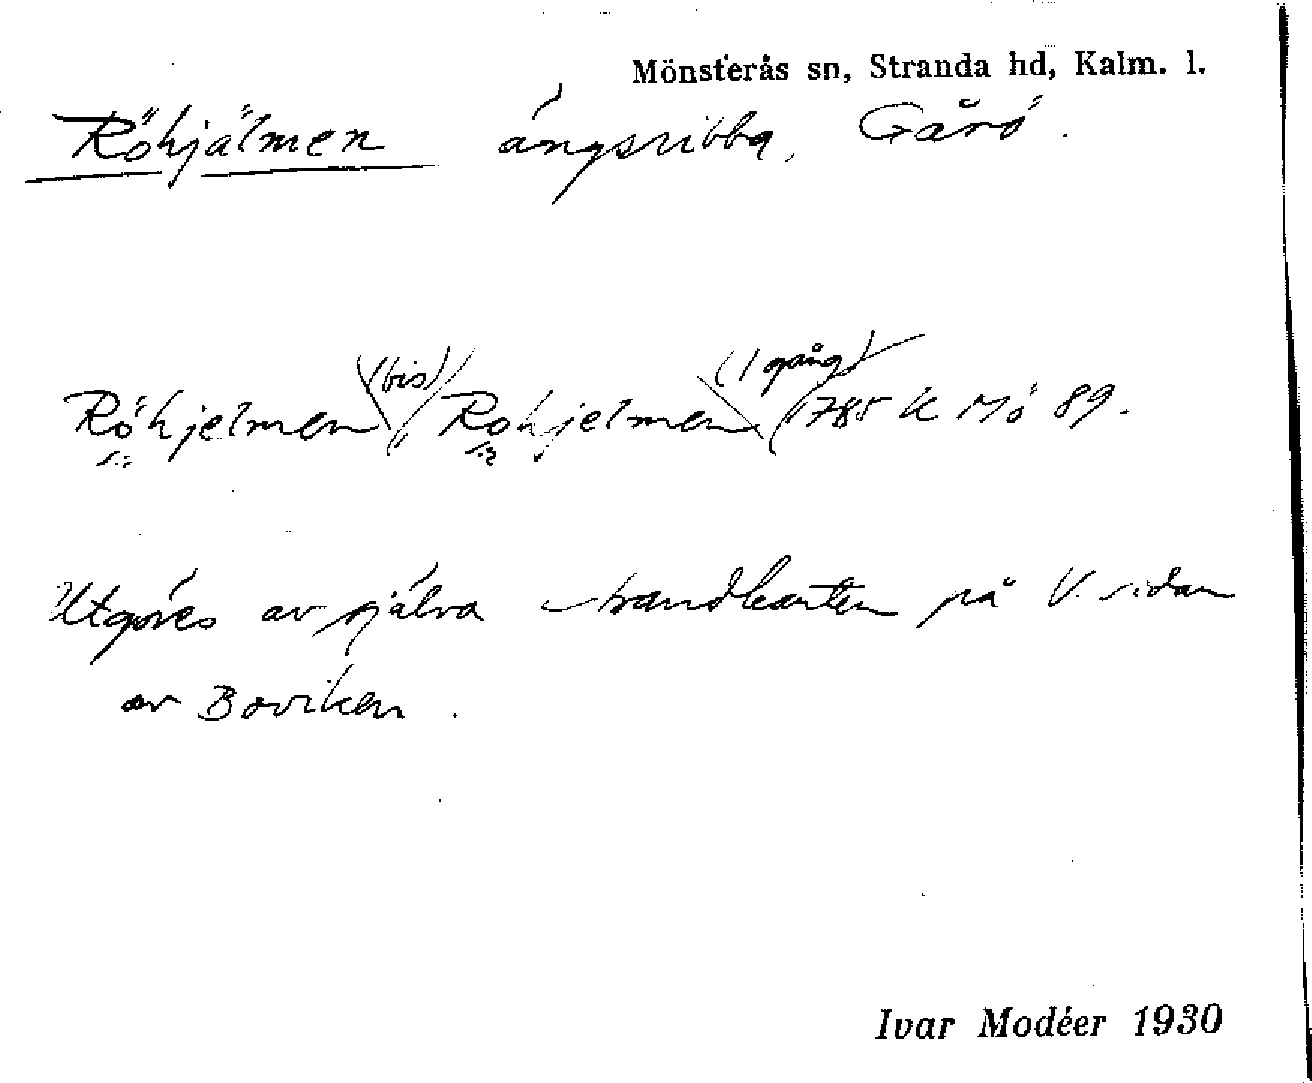 Mönsterås sn, Stranda hd, Kalm. l.
Röhjälmen ängsribba, Gårö.
Röhjelmen (bis), Rohjelmen (1 gång) 1785 K Mö 89.
Utgöres av själva strandkanten på V. sidan
av Boviken.
Ivar Modéer 1930